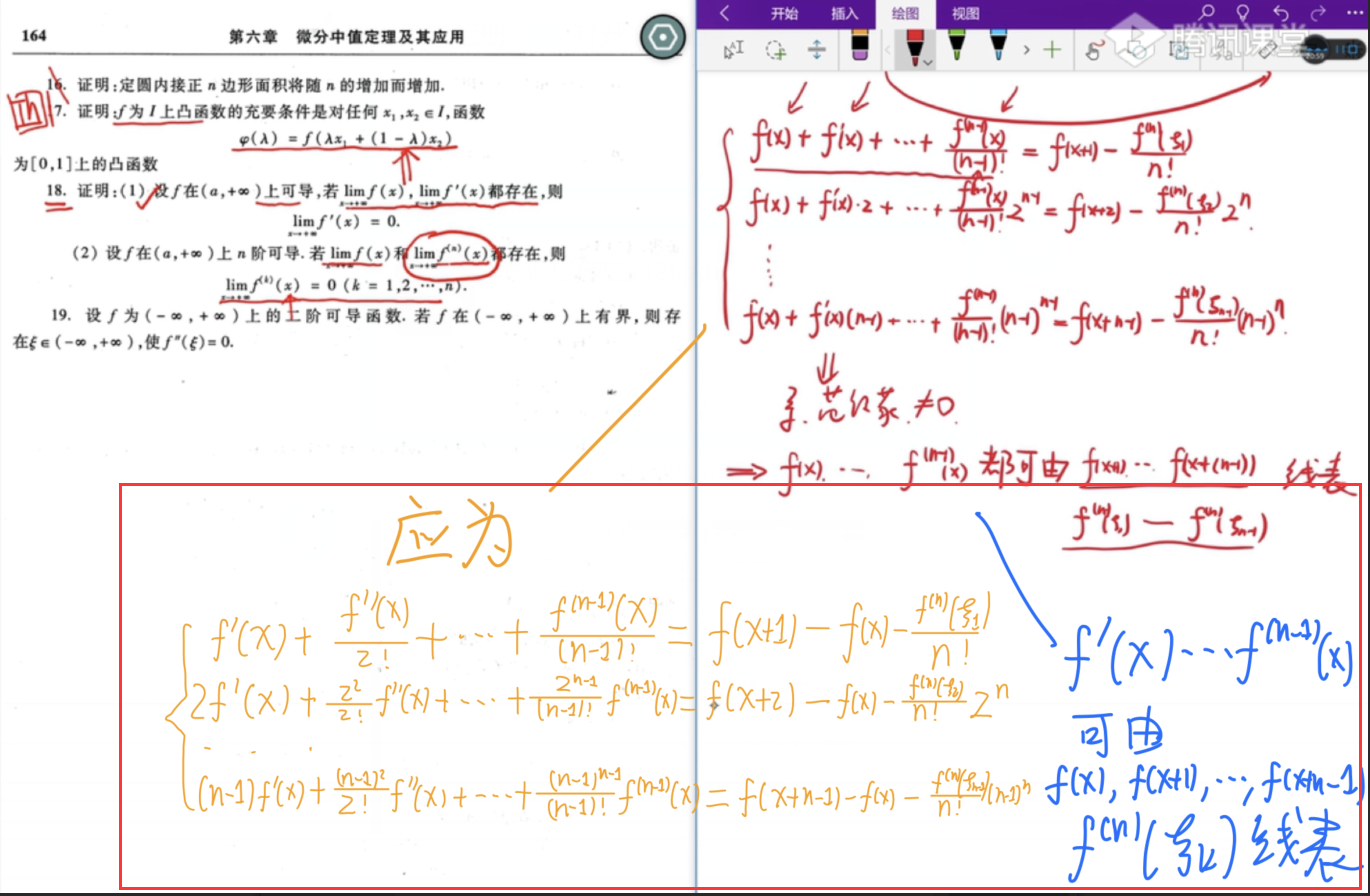 164 第六章 微分中值定理及其应用
16. 证明:定圆内接正 n 边形面积将随 n 的增加而增加.
17. 证明:f为 I 上凸函数的充要条件是对任何 x₁,x₂∈I,函数
φ(λ) = f(λx₁ + (1 − λ)x₂)
为[0,1]上的凸函数
18. 证明:(1) 设 f 在(a,+∞)上可导,若 lim f(x), lim f′(x)都存在,则
x→+∞ x→+∞
lim f′(x) = 0.
x→+∞
(2) 设 f 在(a,+∞)上 n 阶可导.若 lim f(x)和 lim f⁽ⁿ⁾(x)都存在,则
x→+∞ x→+∞
lim f⁽ᵏ⁾(x) = 0 (k = 1,2,⋯,n).
x→+∞
19. 设 f 为(−∞,+∞)上的二阶可导函数.若 f 在(−∞,+∞)上有界,则存
在ξ∈(−∞,+∞),使 f″(ξ)=0.
开始 插入 绘图 视图
腾讯课堂
f(x) + f′(x) + ⋯ + f⁽ⁿ⁻¹⁾(x)/(n-1)! = f(x+1) − f⁽ⁿ⁾(ξ₁)/n!
f(x) + f′(x)·2 + ⋯ + f⁽ⁿ⁻¹⁾(x)/(n-1)! 2ⁿ⁻¹ = f(x+2) − f⁽ⁿ⁾(ξ₂)/n! 2ⁿ
⋮
f(x) + f′(x)(n-1) + ⋯ + f⁽ⁿ⁻¹⁾/(n-1)! (n-1)ⁿ⁻¹ = f(x+n-1) − f⁽ⁿ⁾(ξₙ₋₁)/n! (n-1)ⁿ
⇓
≠0
⟹ f(x) ⋯ f⁽ⁿ⁻¹⁾(x) 都可由 f(x+1) ⋯ f(x+(n-1)) 线表
f⁽ⁿ⁾(ξ₁) — f⁽ⁿ⁾(ξₙ₋₁)
应为
f′(x) + f″(x)/2! + ⋯ + f⁽ⁿ⁻¹⁾(x)/(n-1)! = f(x+1) − f(x) − f⁽ⁿ⁾(ξ₁)/n!
2f′(x) + 2²/2! f″(x) + ⋯ + 2ⁿ⁻¹/(n-1)! f⁽ⁿ⁻¹⁾(x) = f(x+2) − f(x) − f⁽ⁿ⁾(ξ₂)/n! 2ⁿ
⋯
(n-1)f′(x) + (n-1)²/2! f″(x) + ⋯ + (n-1)ⁿ⁻¹/(n-1)! f⁽ⁿ⁻¹⁾(x) = f(x+n-1) − f(x) − f⁽ⁿ⁾(ξₙ₋₁)/n! (n-1)ⁿ
f′(x) ⋯ f⁽ⁿ⁻¹⁾(x)
可由
f(x), f(x+1), ⋯, f(x+n-1)
f⁽ⁿ⁾(ξₖ) 线表